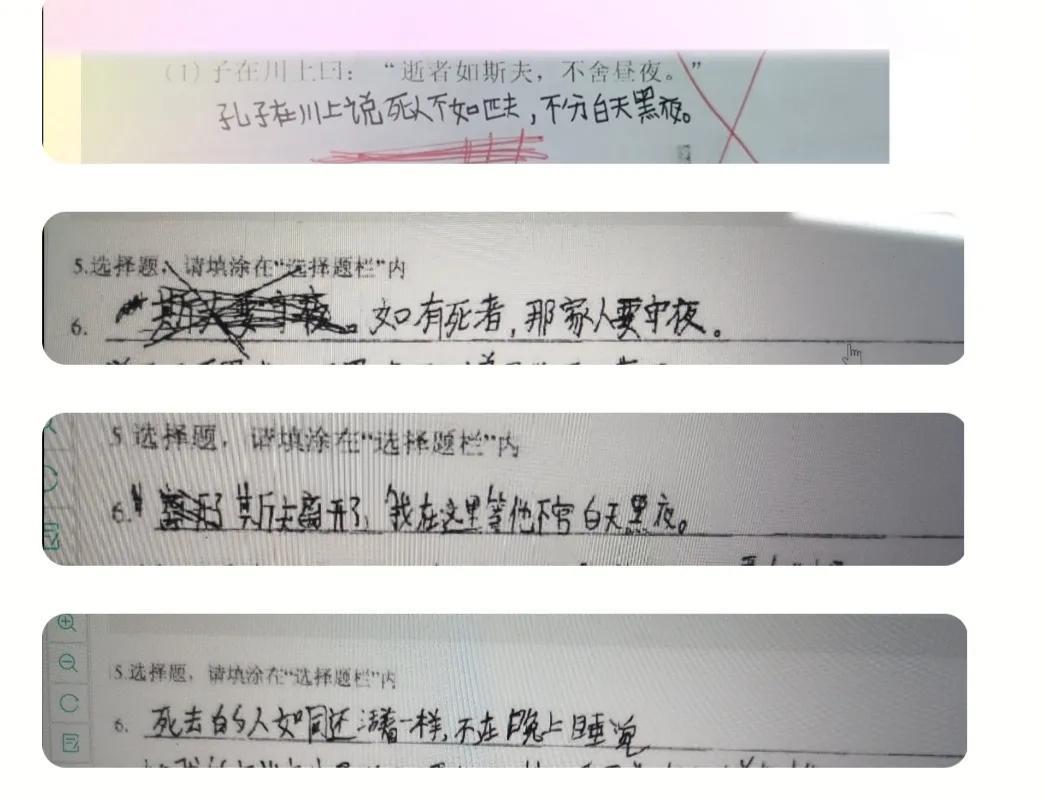 (1) 子在川上曰：“逝者如斯夫，不舍昼夜。”
孔子在川上说死人不如匹夫，不分白天黑夜。
5.选择题，请填涂在“选择题栏”内
6. 如有死者，那家人要守夜。
5 选择题，请填涂在“选择题栏”内
6. 其斤夫离开了，我在这里等他不官白天黑夜。
5.选择题，请填涂在“选择题栏”内
6. 死去的人如同还活着一样，不在晚上睡觉